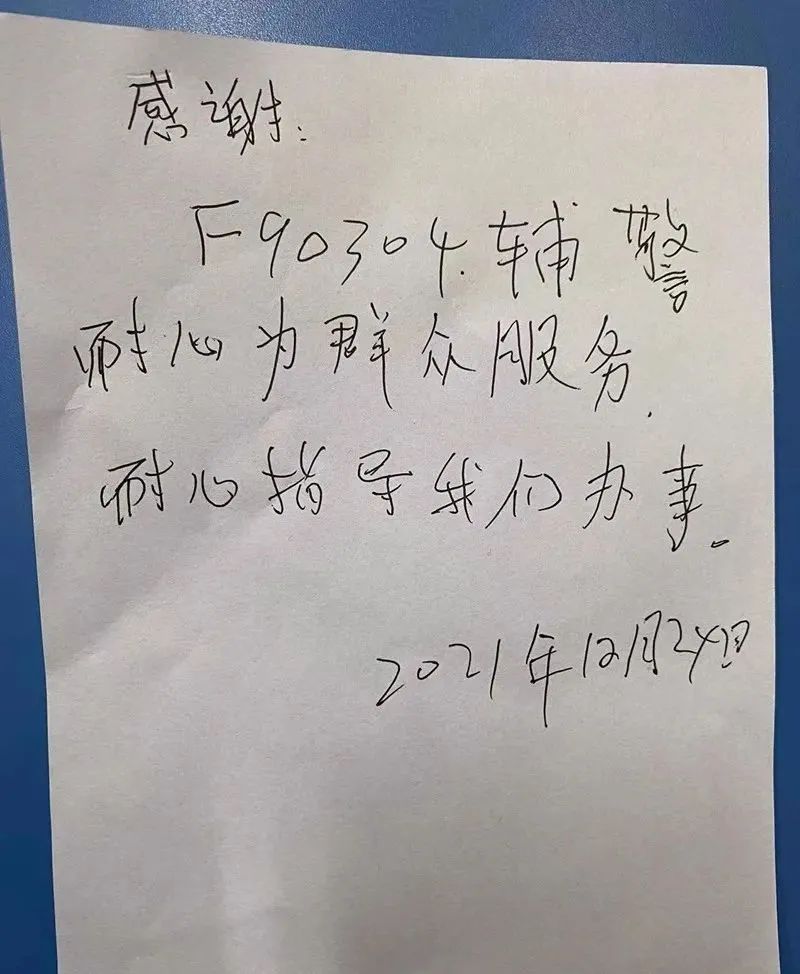 感谢:
F90304.辅警
耐心为群众服务.
耐心指导我们办事。
2021年12月24日